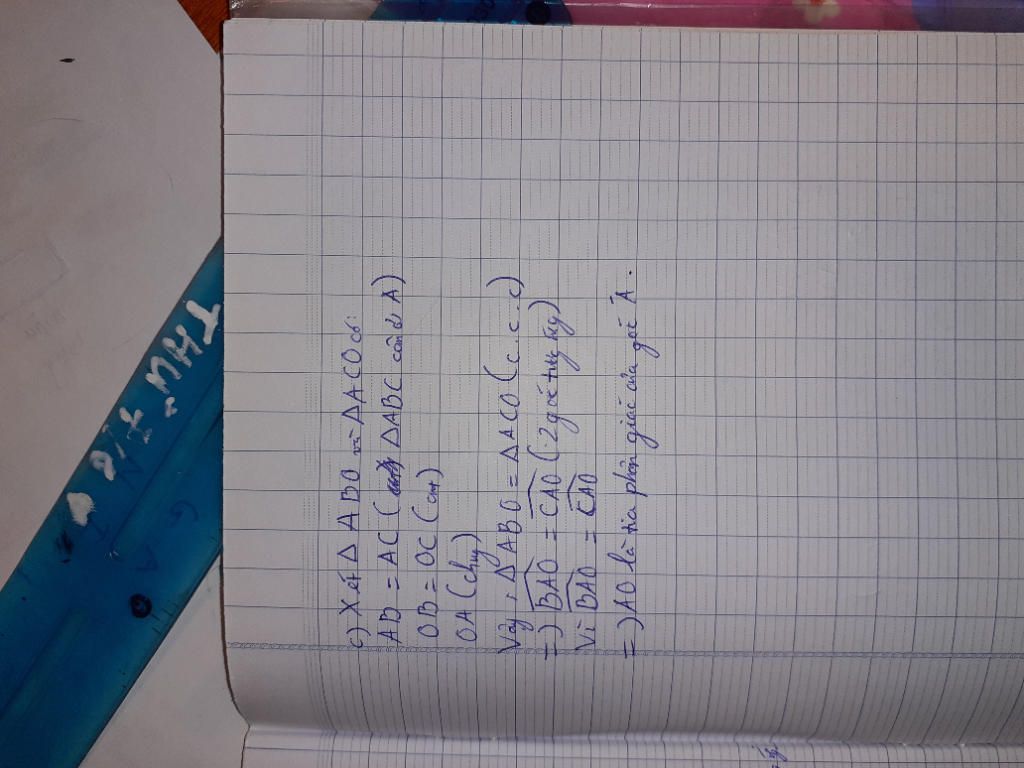 c) Xét Δ ABO và ΔACO có:
AB = AC ( ΔABC cân ở A)
OB = OC (cmt)
OA (chung)
Vậy, Δ ABO = ΔACO (c.c.c)
=) BAO = CAO (2 góc tương ứng)
Vì BAO = CAO
=) AO là tia phân giác của góc A.
THƯ